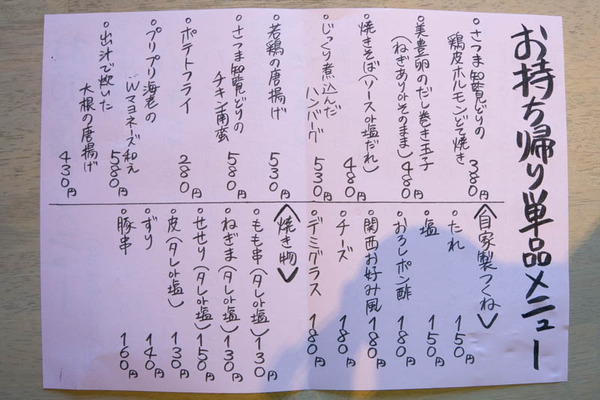 お持ち帰り単品メニュー
・さつま知覧どりの
鶏皮ホルモンどて焼き 380円
・美豊卵のだし巻き玉子
(ねぎありorそのまま) 480円
・焼きそば(ソースor塩だれ) 480円
・じっくり煮込んだ
ハンバーグ 530円
・若鶏の唐揚げ 530円
・さつま知覧どりの
チキン南蛮 580円
・ポテトフライ 280円
・プリプリ海老の
Wマヨネーズ和え 580円
・出汁で炊いた
大根の唐揚げ 430円
<自家製つくね>
・たれ 150円
・塩 150円
・おろしポン酢 180円
・関西お好み風 180円
・チーズ 180円
・デミグラス 180円
<焼き物>
・もも串(タレor塩) 130円
・ねぎま(タレor塩) 130円
・せせり(タレor塩) 150円
・皮(タレor塩) 130円
・ずり 140円
・豚串 160円